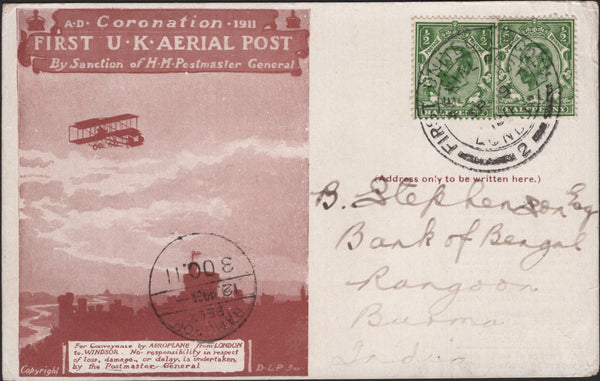 A·D· Coronation · 1911
FIRST U·K·AERIAL POST
By Sanction of H·M·Postmaster General
½ ½
FIRST
LOND
2
(Address only to be written here.)
B. Stephenson Esq
Bank of Bengal
Rangoon
Burma
India
3 OC. 11
For Conveyance by AEROPLANE from LONDON
to WINDSOR. No responsibility in respect
of loss, damage, or delay, is undertaken
by the Postmaster General
Copyright
D·L·P· Inv